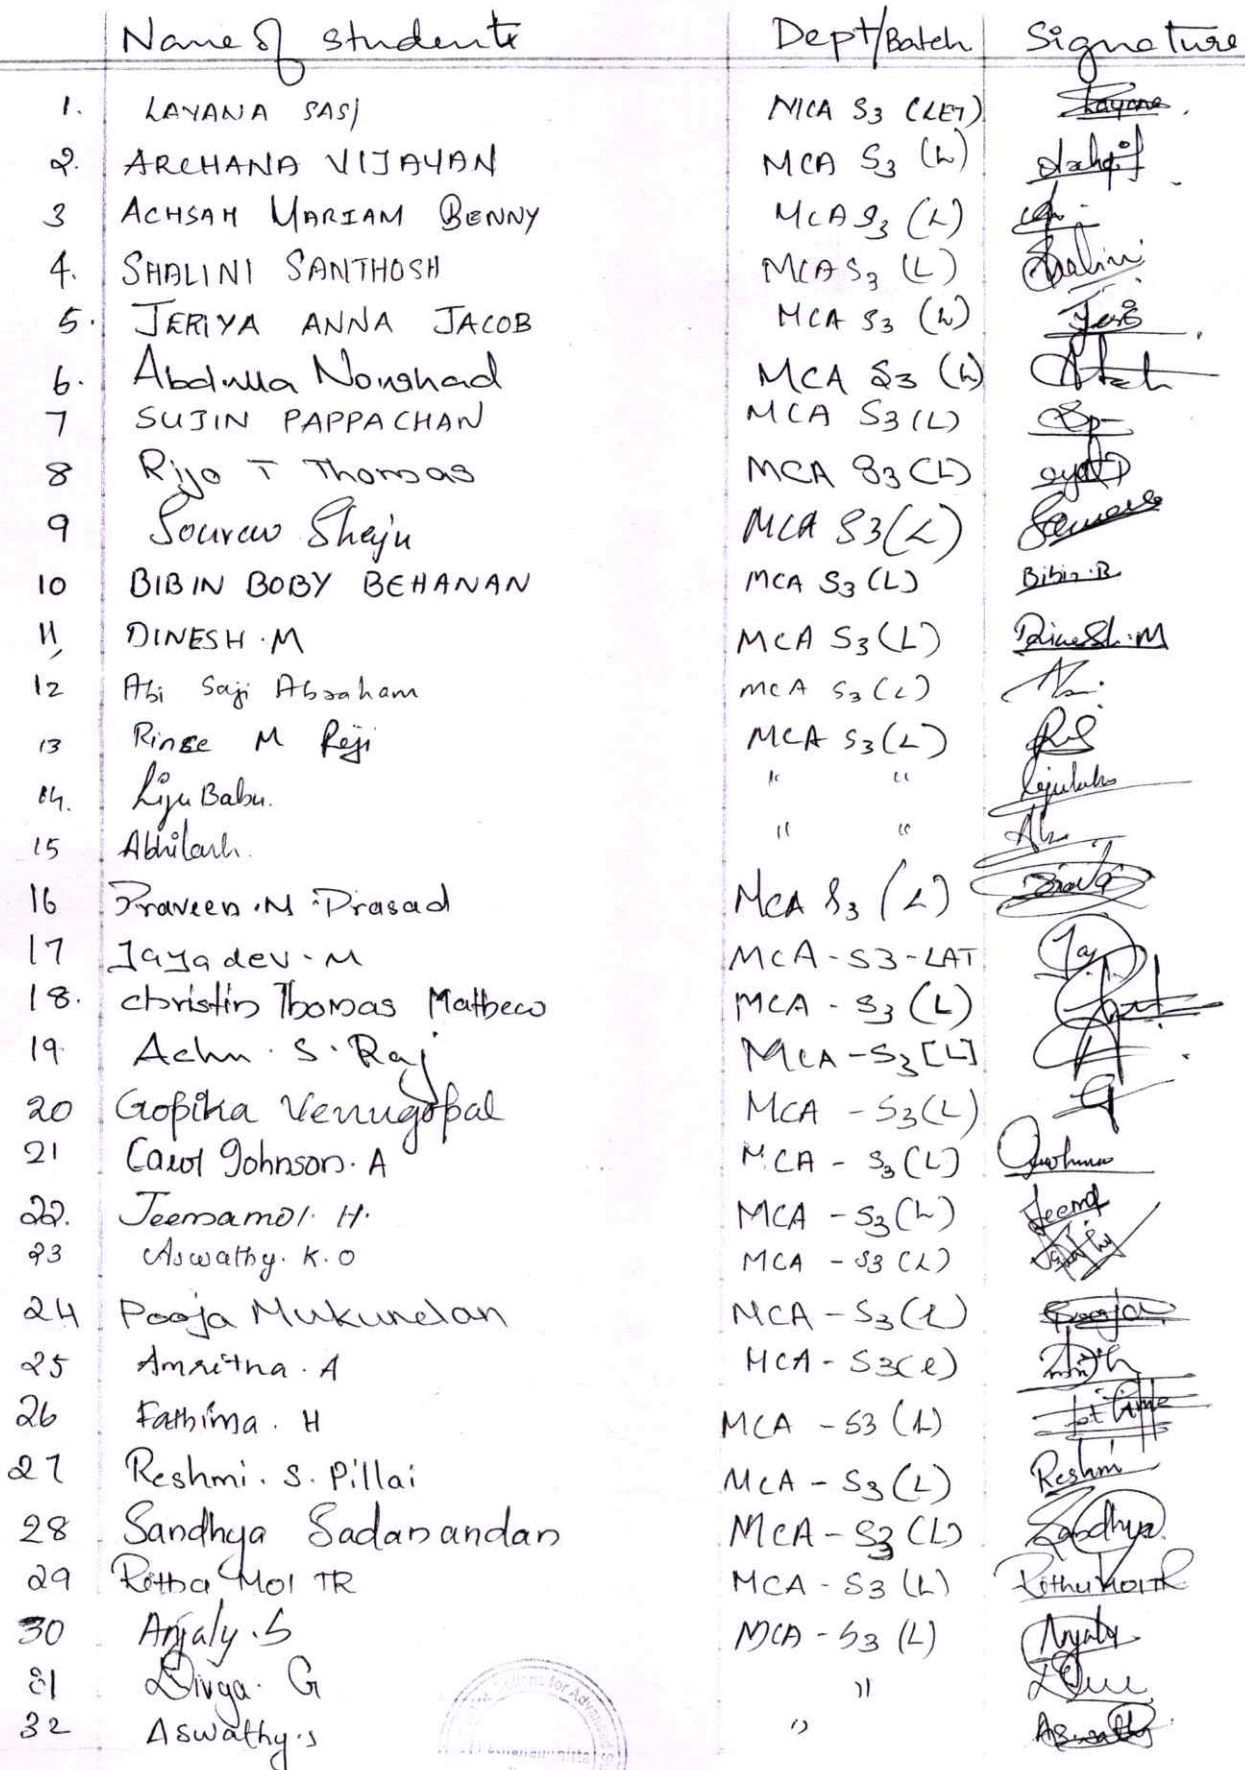 Name of students Dept/Batch Signature
1. LAYANA SASI MCA S3 (LET) Layana
2. ARCHANA VIJAYAN MCA S3 (L)
3 ACHSAH MARIAM BENNY MCA S3 (L)
4. SHALINI SANTHOSH MCA S3 (L) Shalini
5. JERIYA ANNA JACOB MCA S3 (L)
6. Abdulla Noushad MCA S3 (L)
7 SUJIN PAPPACHAN MCA S3 (L) Sp
8 Rijo T Thomas MCA S3 (L)
9 Sourav Shaju MCA S3 (L)
10 BIBIN BOBY BEHANAN MCA S3 (L) Bibin.B
11 DINESH.M MCA S3 (L) Dinesh.M
12 Abi Saji Abraham MCA S3 (L)
13 Rinse M Reji MCA S3 (L)
14. Liju Babu. " "
15 Abhilash. " "
16 Praveen.N.Prasad MCA S3 (L)
17 Jayadev.M MCA-S3-LAT Jay
18. Christin Thomas Mathew MCA - S3 (L)
19. Achu.S.Raj MCA-S3 [L]
20 Gopika Venugopal MCA - S3 (L)
21 Carol Johnson.A MCA - S3 (L)
22. Jeenamol.H. MCA - S3 (L) Jeena
23 Aswathy.K.O MCA - S3 (L)
24 Pooja Mukundan MCA - S3 (L) Pooja
25 Amritha.A MCA - S3 (L)
26 Fathima.H MCA - S3 (L)
27 Reshmi.S.Pillai MCA - S3 (L) Reshmi
28 Sandhya Sadanandan MCA - S3 (L) Sandhya
29 Mol TR MCA - S3 (L)
30 Anjaly.S MCA - S3 (L) Anjaly
31 Divya.G "
32 Aswathy.s " Aswathy